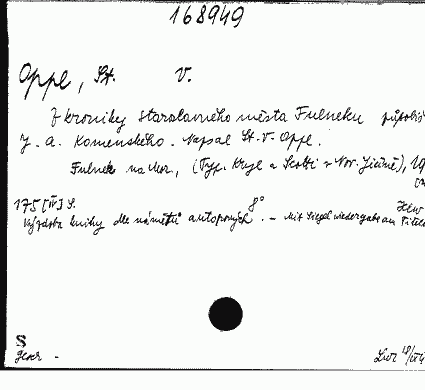 168949
Oppe, St. V.
Z kroniky staroslavného města Fulneku působiš
J. A. Komenského. Napsal St. V. Oppe.
Fulnek na Mor., (Typ. Kryl a Scotti v Nov. Jičíně), 19
175 [IV] S. 8°
Výzdoba knihy dle námětů autorových. - Mit Siegelwiedergabe am Titel
S